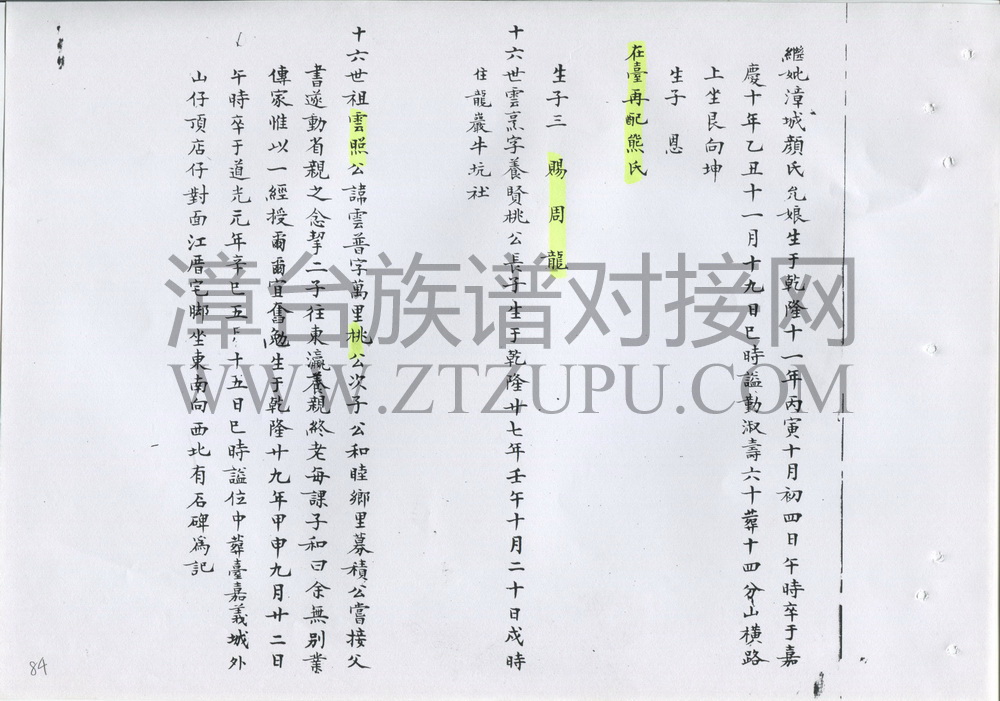 繼妣漳城顏氏允娘生于乾隆十一年丙寅十月初四日午時卒于嘉
慶十年乙丑十一月十九日巳時謚勤淑壽六十葬十四分山橫路
上坐艮向坤
生子 恩
在臺再配熊氏
生子三 賜 周 龍
十六世雲烹字養賢桃公長子生于乾隆廿七年壬午十月二十日戌時
住龍巖牛坑社
十六世祖雲照公諱雲普字萬里桃公次子公和睦鄉里募積公嘗接父
書遂動省親之念挈二子往東瀛養親終老每課子和曰余無別業
傳家惟以一經授爾爾宜奮勉生于乾隆廿九年甲申九月廿二日
午時卒于道光元年辛巳五 十五日巳時謚位中葬臺嘉義城外
山仔頂店仔對面江厝宅脚坐東南向西北有石碑爲記
漳台族谱对接网
WWW.ZTZUPU.COM
84